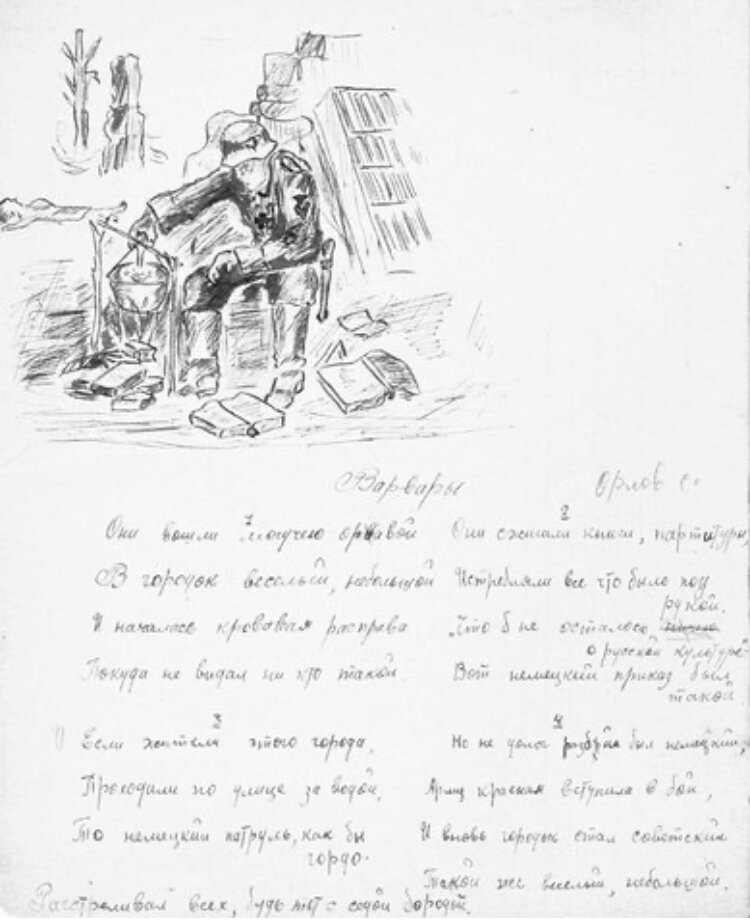 Варвары
Орлов С.
1
Они вошли могучею оравой
В городок веселый, небольшой
И началась кровавая расправа
Покуда не видал ни кто такой.
2
Они сжигали книги, партитуры,
Истребляли все что было под
рукой.
"Что б не осталось
о русской культуре"
Вот немецкий приказ был
такой
3
Если жители этого города,
Проходили по улице за водой,
То немецкий патруль, как бы
гордо.
Расстреливал всех, будь то с седой бородой.
4
Но не долог был немецкий,
Армия красная вступила в бой,
И вновь городок стал советским
Такой же веселый, небольшой.